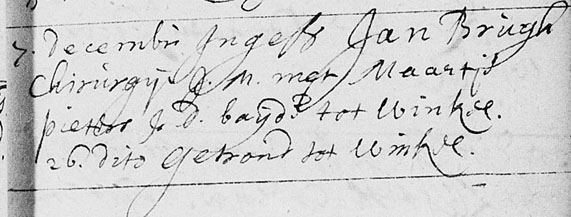 7. decembris Ingess Jan Brugh
Chirurgijn J. M. met Maartje
pieters J. D. bayde tot Winkel.
26. dito getrond tot Winkel.